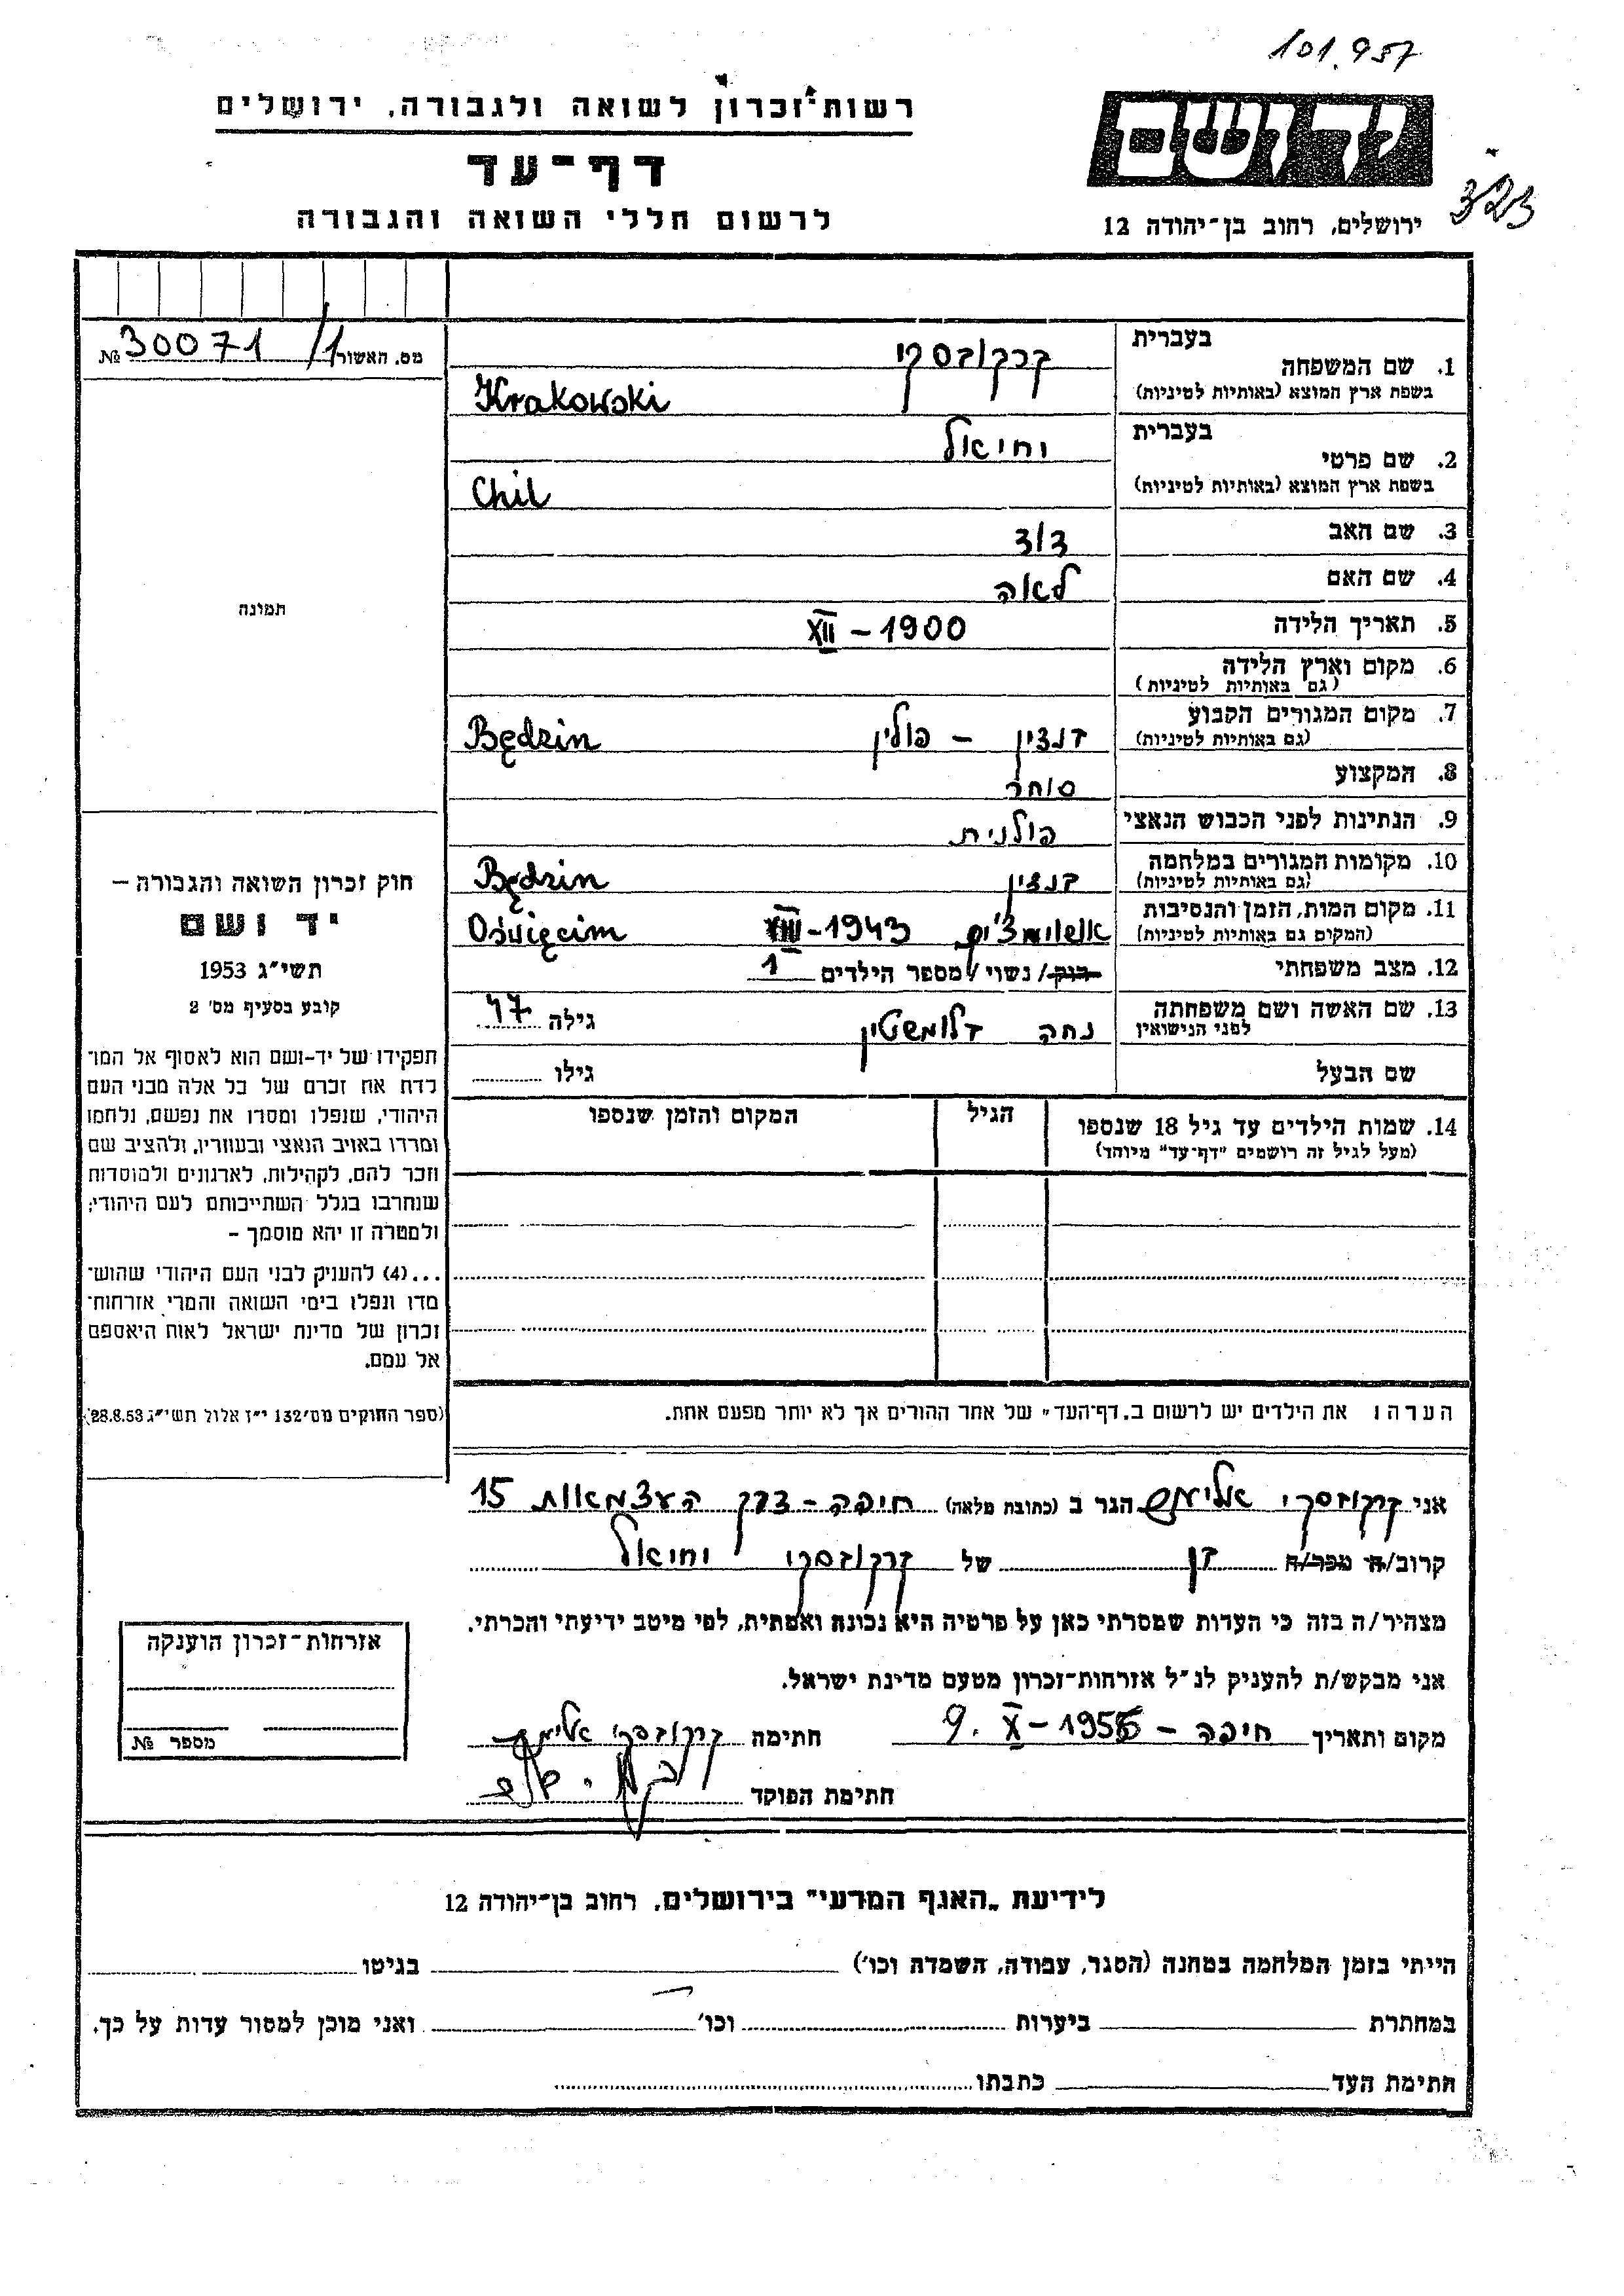 101.957
רשות־זכרון לשואה ולגבורה, ירושלים
יד ושם
דף־עד
323
לרשום חללי השואה והגבורה
ירושלים, רחוב בן־יהודה 12
מס. האשור 30071/1 №
בעברית
1. שם המשפחה קרקובסקי
בשפת ארץ המוצא (באותיות לטיניות) Krakowski
בעברית
2. שם פרטי יחיאל
בשפת ארץ המוצא (באותיות לטיניות) Chil
3. שם האב דוד
4. שם האם לאה
5. תאריך הלידה XII – 1900
6. מקום וארץ הלידה
(גם באותיות לטיניות)
7. מקום המגורים הקבוע בנצין – פולין Będzin
(גם באותיות לטיניות)
8. המקצוע סוחר
9. הנתינות לפני הכבוש הנאצי פולנית
10. מקומות המגורים במלחמה בנצין Będzin
(גם באותיות לטיניות)
11. מקום המות, הזמן והנסיבות VIII – 1943 Oświęcim
(המקום גם באותיות לטיניות)
12. מצב משפחתי רווק / נשוי / מספר הילדים 1
13. שם האשה ושם משפחתה נחה גילה 47
לפני הנישואין
שם הבעל גילו
14. שמות הילדים עד גיל 18 שנספו הגיל המקום והזמן שנספו
(מעל לגיל זה רושמים "דף־עד" מיוחד)
תמונה
חוק זכרון השואה והגבורה –
יד ושם
תשי"ג 1953
קובע בסעיף מס' 2
תפקידו של יד-ושם הוא לאסוף אל המו־
לדת את זכרם של כל אלה מבני העם
היהודי, שנפלו ומסרו את נפשם, נלחמו
ומרדו באויב הנאצי ובעוזריו, ולהציב שם
וזכר להם, לקהילות, לארגונים ולמוסדות
שנחרבו בגלל השתייכותם לעם היהודי;
ולמטרה זו יהא מוסמך –
...(4) להעניק לבני העם היהודי שהוש־
מדו ונפלו בימי השואה והמרי אזרחות־
זכרון של מדינת ישראל לאות היאספם
אל עמם.
(ספר החוקים מס' 132 י"ז אלול תשי"ג 28.8.53)
הערה: את הילדים יש לרשום ב„דף־העד" של אחד ההורים אך לא יותר מפעם אחת.
אני קרקובסקי הגר ב (כתובת מלאה) חיפה – דרך העצמאות 15
קרוב/ה מכר/ה בן של קרקובסקי יחיאל
מצהיר/ה בזה כי העדות שמסרתי כאן על פרטיה היא נכונה ואמתית, לפי מיטב ידיעתי והכרתי.
אני מבקש/ת להעניק לנ"ל אזרחות־זכרון מטעם מדינת ישראל.
מקום ותאריך חיפה – 9. X – 1955 חתימה קרקובסקי
חתימת הפוקד
אזרחות־זכרון הוענקה
מספר №
לידיעת „האגף המדעי" בירושלים, רחוב בן־יהודה 12
הייתי בזמן המלחמה במחנה (הסגר, עבודה, השמדה וכו') בגיטו
במחתרת ביערות וכו' ואני מוכן למסור עדות על כך.
חתימת העד כתבתו